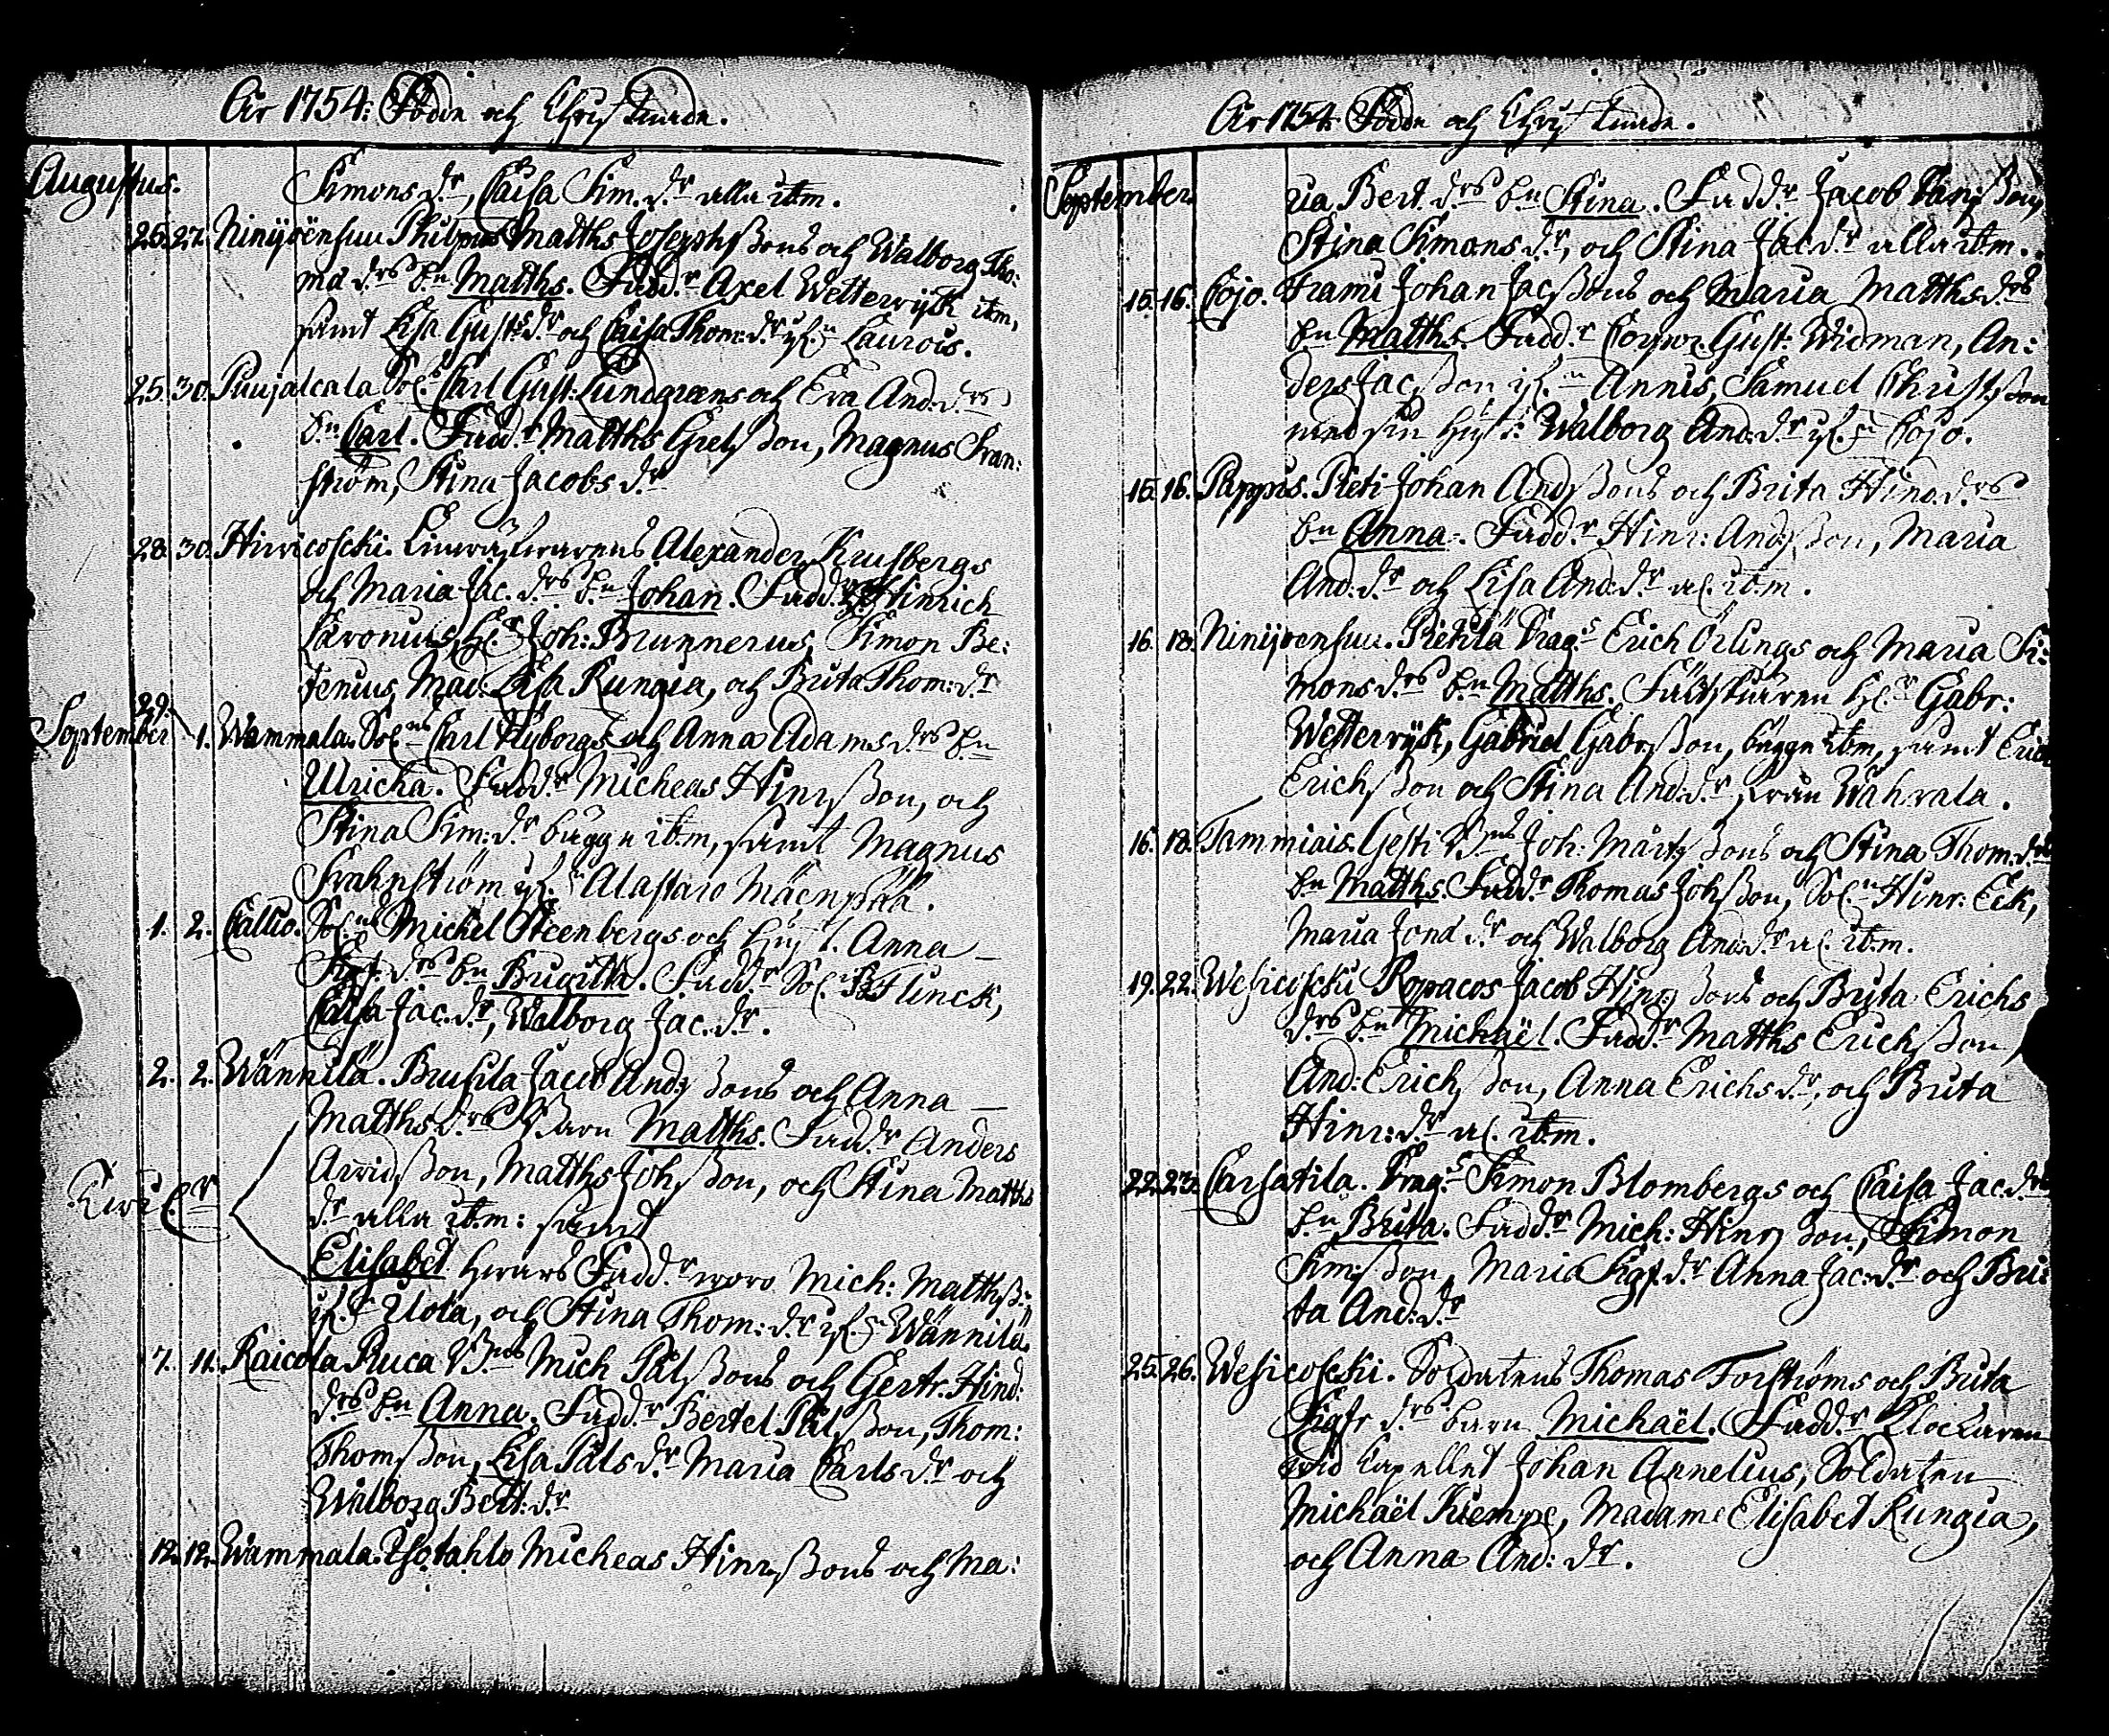 År 1754: Födde och Christnade.
Augustus.
Simons dr, Caisa Sim. dr alla ibm.
25. 27. Ninijoensuu Philpus Matths Josephssons och Walborg Tho:
mæ drs bn Matths. Fadd:r Axel Wetterwijk ibm,
samt Lisa Gust:dr och Caisa Thom:dr ifrn Laurois.
25. 30. Puujalcala Sol: Carl Gust: Lundgrens och Eva And: drs
bn Carl. Fadd:r Matths Grelsson, Magnus Fran:
ström, Stina Jacobs dr
28. 30. Hirvicoscki. Alexander Krusbergs
och Maria Jac. drs bn Johan. Fadd:r Hr Hinrich
Hr Joh: Brunnerus, Simon Be:
tenius, Mad: Lisa Rungia, och Brita Thom: dr
September
29. 1. Wammala. Solns Carl Flyborgs och Anna Adams drs bn
Ulricha. Fadd:r Micheas Hinrsson, och
Stina Sim: dr bägge ibm, samt Magnus
Frahnström ifrn Alastaro Mäenpää.
1. 2. Callio. Solns Mickel Steenbergs och Anna
drs bn Brigitta. Fadd:r Sol: Flinck,
Caisa Jac. dr, Walborg Jac. dr.
2. 2. Wännilä. Brusila Jacob Andssons och Anna
Matths drs Barn Matths. Fadd:r Anders
Arvidsson, Matths Johsson, och Stina Matths
dr alla ibm: samt
Elisabet hvars Fadd:r woro Mich: Matthss:
ifrn Uota, och Stina Thom: dr ifrn Wännilä.
7. 11. Raicola Ruca Bns Mich Pålssons och Gertr. Hind:
drs bn Anna. Fadd:r Bertel Pålsson, Thom:
Thomsson, Lisa Påls dr Maria Carls dr och
Walborg Bert: dr
12. 12. Wammala. Isotahlo Micheas Hinrssons och Ma:
År 1754: Födde och Christnade.
September
ria Bert. drs bn Stina. Fadd:r Jacob
Stina Simons dr, och Stina Jac dr alla ibm.
15. 16. Cojo. Frami Johan Jacssons och Maria Matths drs
bn Matths. Fadd:r Gust: Widman, An:
ders Jacsson ifrn Annis, Samuel Christsson
med sin Hust: Walborg And: dr ifrn Cojo.
15. 16. Pappis. Pieti Johan Andssons och Brita Hind. drs
bn Anna. Fadd:r Hinr: Andsson, Maria
And: dr och Lisa And: dr al. ibm.
16. 18. Ninijoensuu. Pietilä Drag:s Erich Örlings och Maria Si:
mons drs bn Matths. Fältskären Hr Gabr:
Wetterwijk, Gabriel Gabrsson, bägge ibm, samt Erich
Erichsson och Stina And: dr från Wahvala.
16. 18. Tammiais. Gesti Bns Joh: Mårtssons och Stina Thom: drs
bn Matths. Fadd:r Thomas Johsson, Soln Hinr: Eek,
Maria Jons dr och Walborg And: dr al. ibm.
19. 22. Wesicoscki Ropacos Jacob Hinrssons och Brita Erichs
drs bn Michaël. Fadd:r Matths Erichsson,
And: Erichsson, Anna Erichs dr, och Brita
Hinr: dr al. ibm.
22. 23. Carsatila. Drag:s Simon Blombergs och Caisa Jac. drs
bn Brita. Fadd:r Mich: Hinrsson, Simon
Simsson, Maria dr Anna Jac: dr och Bri:
ta And: dr
25. 26. Wesicoscki. Soldatens Thomas Forströms och Brita
drs barn Michaël. Fadd:r Klockaren
wid Capellet Johan Annelius, Soldaten
Michaël Kiempe, Madame Elisabet Rungia,
och Anna And: dr.